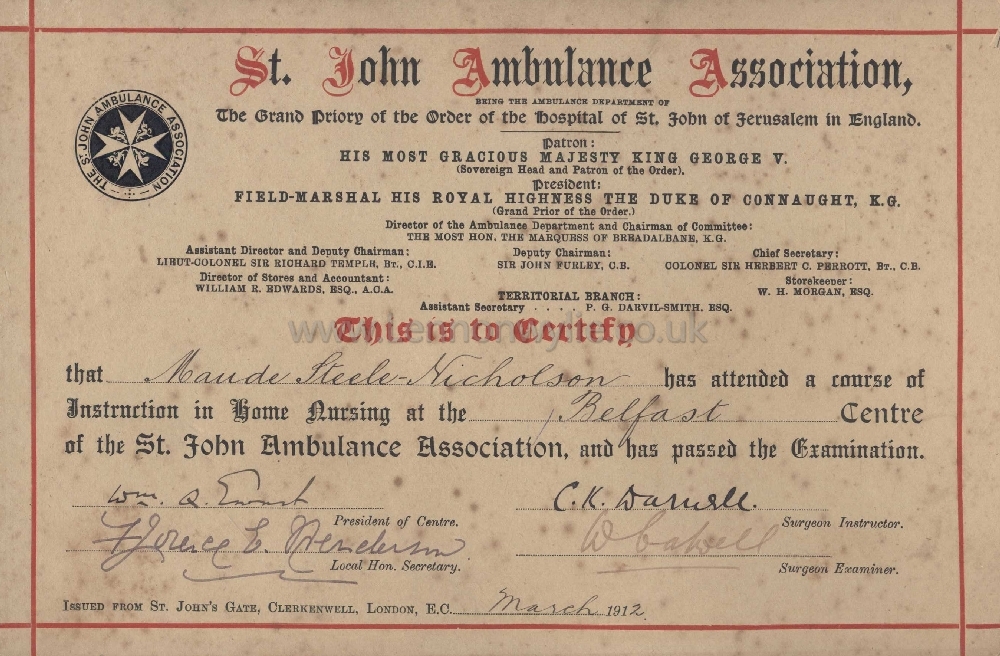 St. John Ambulance Association,
BEING THE AMBULANCE DEPARTMENT OF
The Grand Priory of the Order of the Hospital of St. John of Jerusalem in England.
THE ST. JOHN AMBULANCE ASSOCIATION
Patron:
HIS MOST GRACIOUS MAJESTY KING GEORGE V.
(Sovereign Head and Patron of the Order).
President:
FIELD-MARSHAL HIS ROYAL HIGHNESS THE DUKE OF CONNAUGHT, K.G.
(Grand Prior of the Order.)
Director of the Ambulance Department and Chairman of Committee:
THE MOST HON. THE MARQUESS OF BREADALBANE, K.G.
Assistant Director and Deputy Chairman: Deputy Chairman: Chief Secretary:
LIEUT-COLONEL SIR RICHARD TEMPLE, BT., C.I.E. SIR JOHN FURLEY, C.B. COLONEL SIR HERBERT C. PERROTT, BT., C.B.
Director of Stores and Accountant: Storekeeper:
WILLIAM R. EDWARDS, ESQ., A.C.A. W. H. MORGAN, ESQ.
TERRITORIAL BRANCH:
Assistant Secretary . . . . P. G. DARVIL-SMITH, ESQ.
www.lennonwylie.co.uk
This is to Certify
that Maude Steele-Nicholson has attended a course of
Instruction in Home Nursing at the Belfast Centre
of the St. John Ambulance Association, and has passed the Examination.
Wm. C.K. Darnell.
President of Centre. Surgeon Instructor.
Florence E. Henderson W
Local Hon. Secretary. Surgeon Examiner.
ISSUED FROM ST. JOHN'S GATE, CLERKENWELL, LONDON, E.C. March 1912